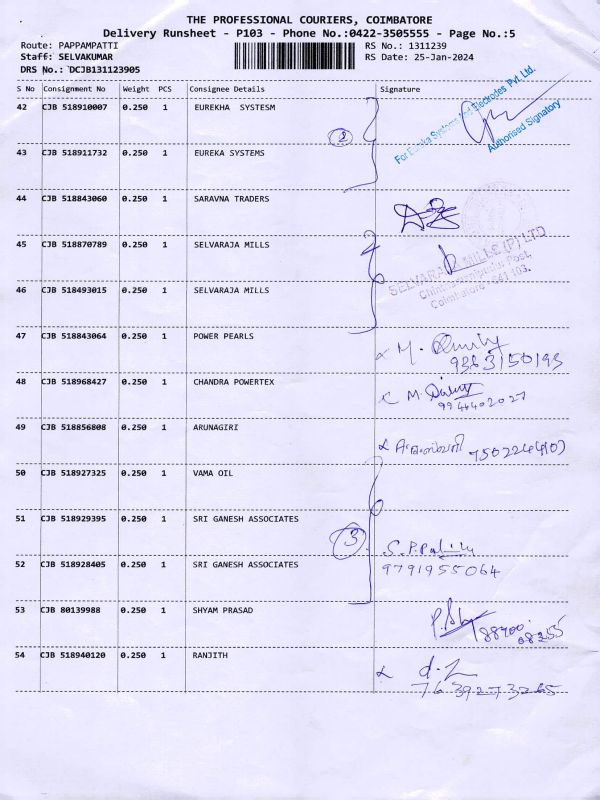 THE PROFESSIONAL COURIERS, COIMBATORE
Delivery Runsheet - P103 - Phone No.:0422-3505555 - Page No.:5
Route: PAPPAMPATTI RS No.: 1311239
Staff: SELVAKUMAR RS Date: 25-Jan-2024
DRS No.: DCJB131123905
S No Consignment No Weight PCS Consignee Details Signature
42 CJB 518910007 0.250 1 EUREKHA SYSTESM
For Eureka Systems and Electrodes Pvt. Ltd.
Authorised Signatory
2
43 CJB 518911732 0.250 1 EUREKA SYSTEMS
44 CJB 518843060 0.250 1 SARAVNA TRADERS
45 CJB 518870789 0.250 1 SELVARAJA MILLS
SELVARAJA MILLS (P) LTD
Post,
Coimbatore - 641 103.
46 CJB 518493015 0.250 1 SELVARAJA MILLS
47 CJB 518843064 0.250 1 POWER PEARLS
M.
9363150193
48 CJB 518968427 0.250 1 CHANDRA POWERTEX
M.
49 CJB 518856808 0.250 1 ARUNAGIRI
50 CJB 518927325 0.250 1 VAMA OIL
51 CJB 518929395 0.250 1 SRI GANESH ASSOCIATES
3
S.P.
9791955064
52 CJB 518928405 0.250 1 SRI GANESH ASSOCIATES
53 CJB 80139988 0.250 1 SHYAM PRASAD
88700 08255
54 CJB 518940120 0.250 1 RANJITH
7639273265